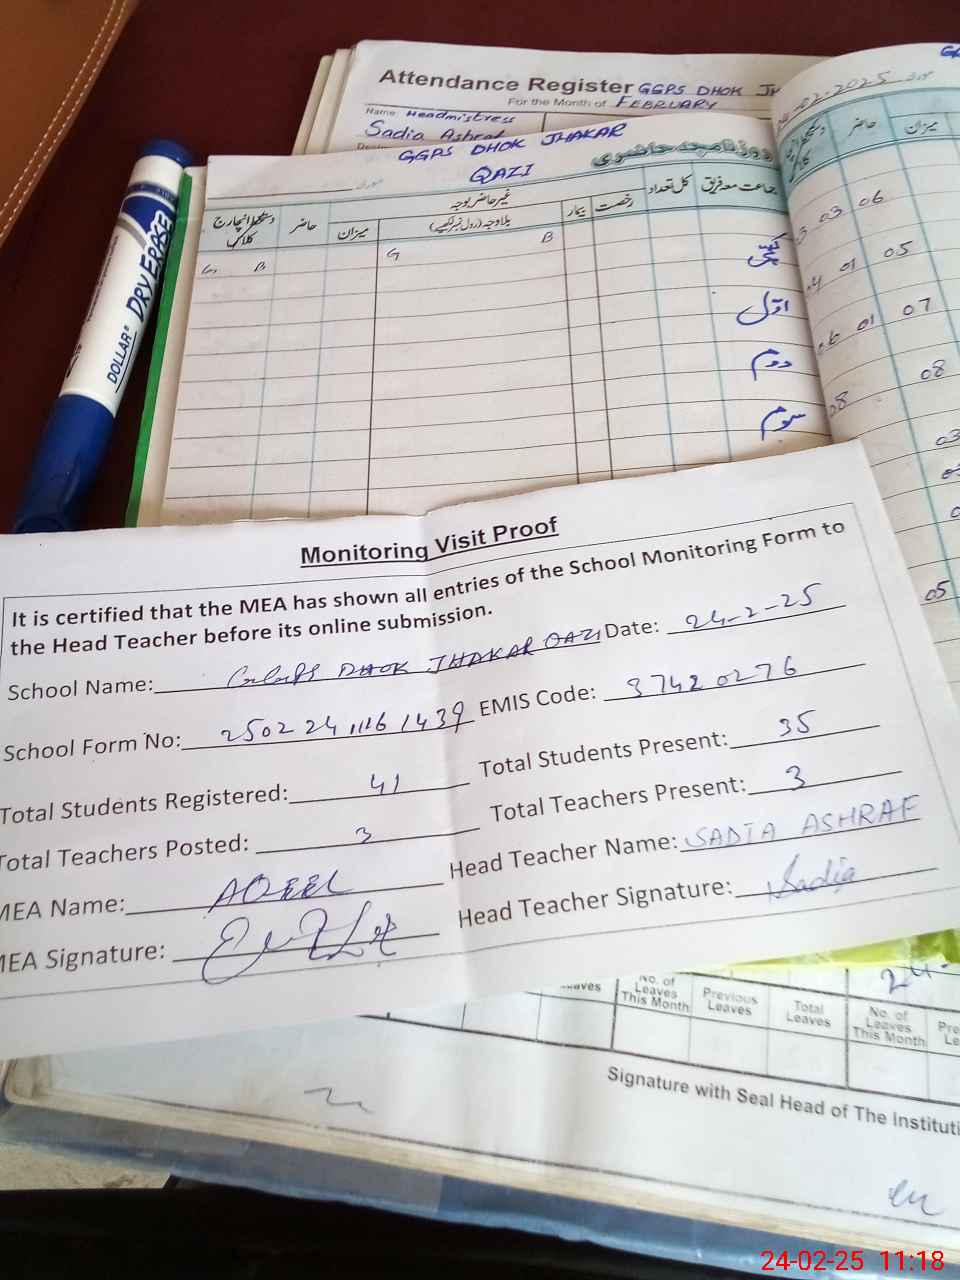 Attendance Register GGPS DHOK JH
For the Month of FEBRUARY
Name: Headmistress
Sadia Ashraf
02.2025
GGPS DHOK JHAKAR
QAZI
روزنامچہ حاضری
جماعت معہ فریق کل تعداد رخصت بیمار غیر حاضر بوجہ میزان حاضر دستخط انچارج کلاس
بلا وجہ (رول نمبر لکھیے)
حاضر میزان
G B G B
کچی
اوّل
دوم
سوم
03 06
01 05
01 07
08 08
03
05
DOLLAR DRY ERASE
Monitoring Visit Proof
It is certified that the MEA has shown all entries of the School Monitoring Form to
the Head Teacher before its online submission.
School Name: GGPS DHOK JHAKAR QAZI Date: 24-2-25
School Form No: 2502 24 1116 1439 EMIS Code: 37420276
Total Students Registered: 41 Total Students Present: 35
Total Teachers Posted: 3 Total Teachers Present: 3
MEA Name: AQEEL Head Teacher Name: SADIA ASHRAF
MEA Signature: Head Teacher Signature: Sadia
24-
Leaves No. of Leaves This Month Previous Leaves Total Leaves No. of Leaves This Month
Signature with Seal Head of The Instituti
24-02-25 11:18